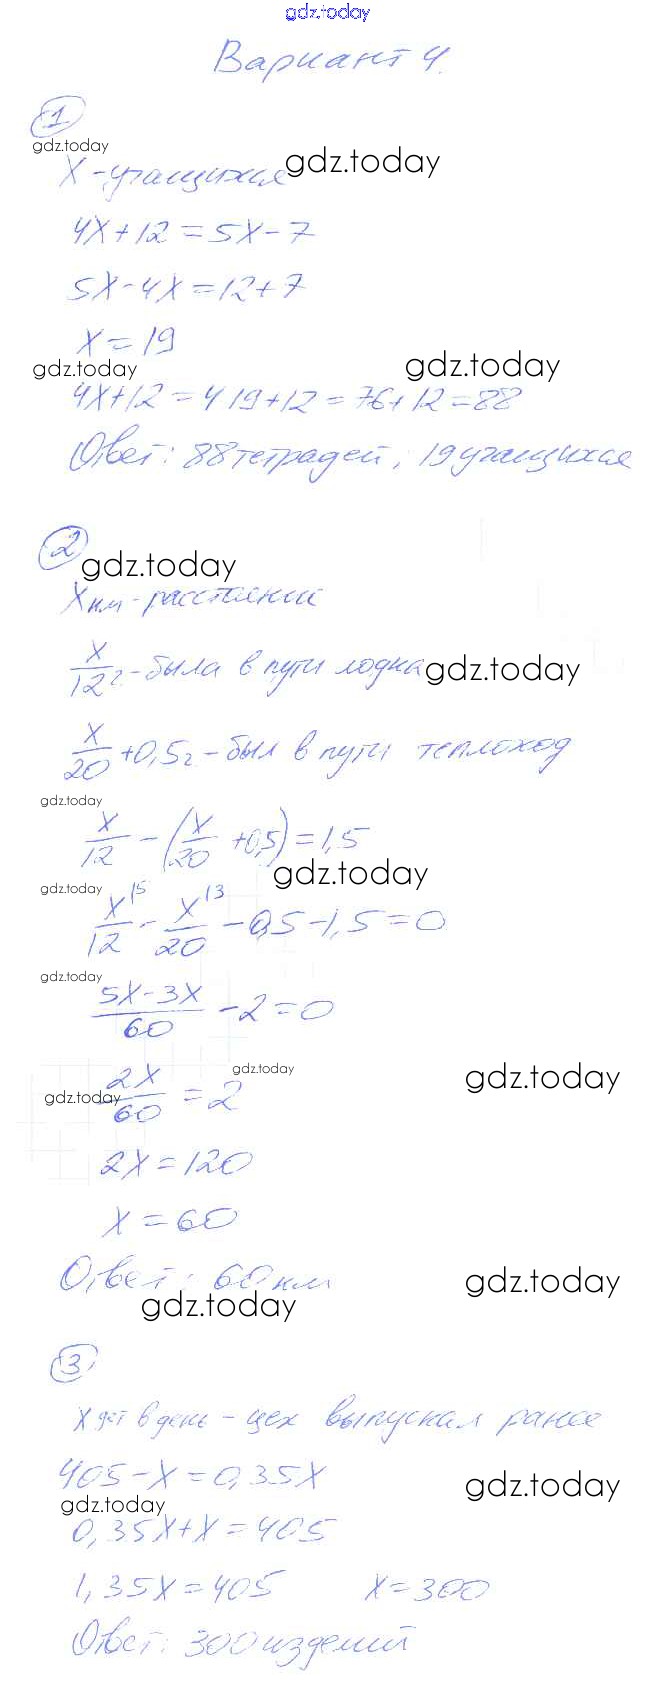 gdz.today
Вариант 4.
1
gdz.today
х - учащихся gdz.today
4х+12=5х-7
5х-4х=12+7
х=19
gdz.today gdz.today
4х+12=4·19+12=76+12=88
Ответ: 88 тетрадей; 19 учащихся
2
gdz.today
х км - расстояние
х/12 г - была в пути лодка gdz.today
х/20 +0,5 г - был в пути теплоход
gdz.today
х/12 - (х/20 +0,5)=1,5
gdz.today
gdz.today
х/12 |5 - х/20 |3 - 0,5-1,5=0
gdz.today
5х-3х/60 -2=0
gdz.today gdz.today
2х/60 =2
gdz.today
2х=120
х=60
Ответ: 60 км
gdz.today
gdz.today
3
х дет в день - цех выпускал ранее
405-х=0,35х
gdz.today
gdz.today
0,35х+х=405
1,35х=405 х=300
Ответ: 300 изделий